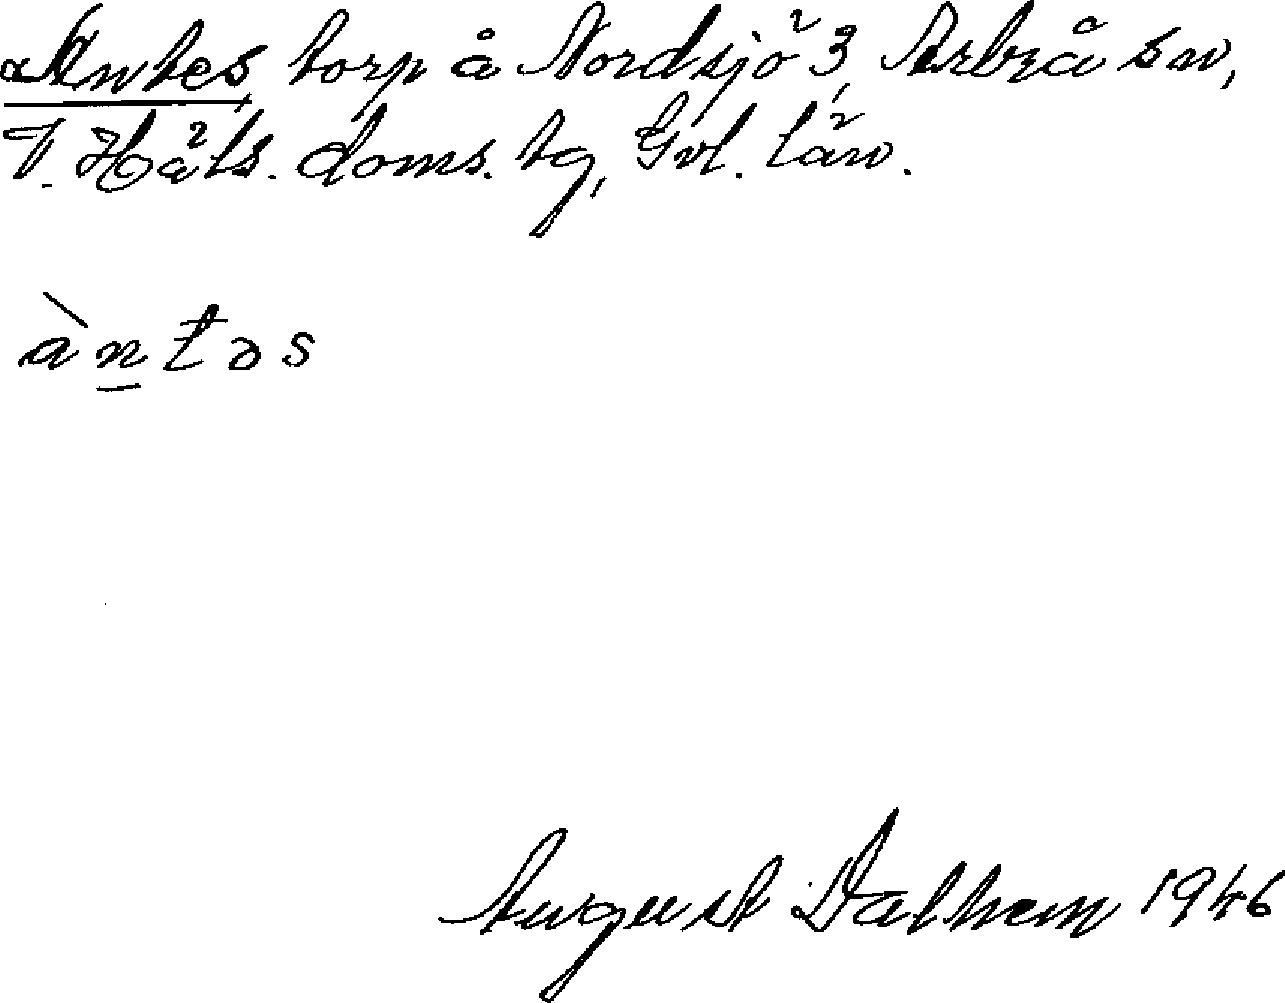 Antes, torp å Nordsjö 3, Arbrå sn,
V. Häls. doms. tg, Gvl. län.
àn̲təs
August Dalhem 1946